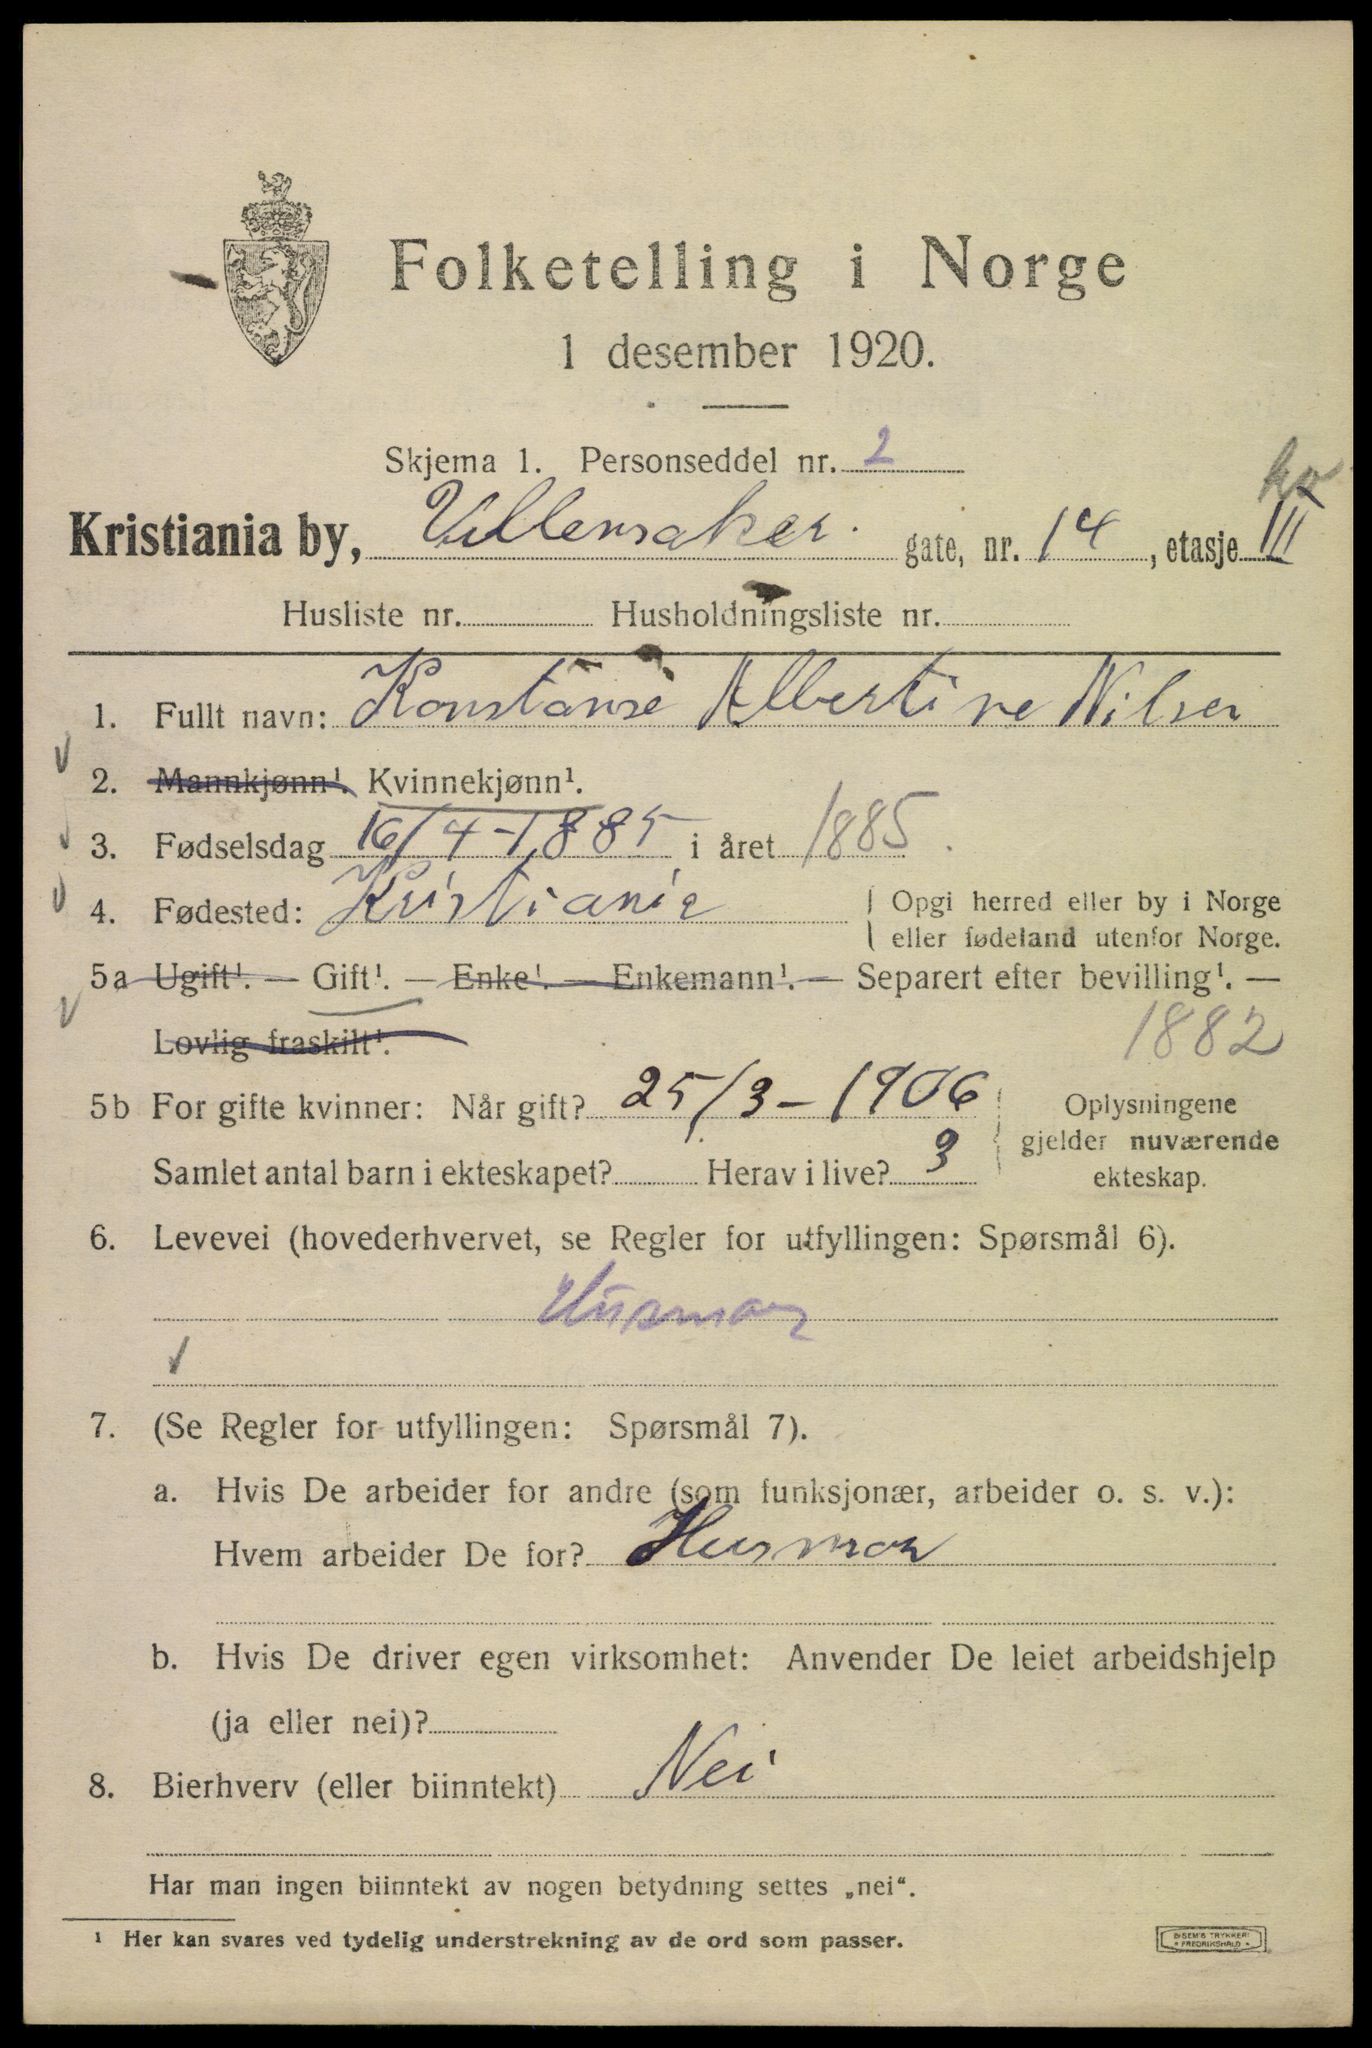 Folketelling i Norge
1 desember 1920.
Skjema 1. Personseddel nr. 2
Kristiania by, Ullensaker gate, nr. 14, etasje III
Husliste nr. Husholdningsliste nr.
1. Fullt navn: Konstanse Albertine Nilsen
2. Mannkjønn¹. Kvinnekjønn¹.
3. Fødselsdag 16/4-1885 i året 1885.
4. Fødested: Kristiania
Opgi herred eller by i Norge
eller fødeland utenfor Norge.
5a Ugift¹. — Gift¹. — Enke¹. — Enkemann¹. — Separert efter bevilling¹. —
Lovlig fraskilt¹. 1882
5b For gifte kvinner: Når gift? 25/3-1906
Samlet antal barn i ekteskapet? Herav i live? 3
Oplysningene
gjelder nuværende
ekteskap.
6. Levevei (hovederhvervet, se Regler for utfyllingen: Spørsmål 6).
Husmor
7. (Se Regler for utfyllingen: Spørsmål 7).
a. Hvis De arbeider for andre (som funksjonær, arbeider o. s. v.):
Hvem arbeider De for? Husmor
b. Hvis De driver egen virksomhet: Anvender De leiet arbeidshjelp
(ja eller nei)?
8. Bierhverv (eller biinntekt) Nei
Har man ingen biinntekt av nogen betydning settes „nei“.
¹ Her kan svares ved tydelig understrekning av de ord som passer.